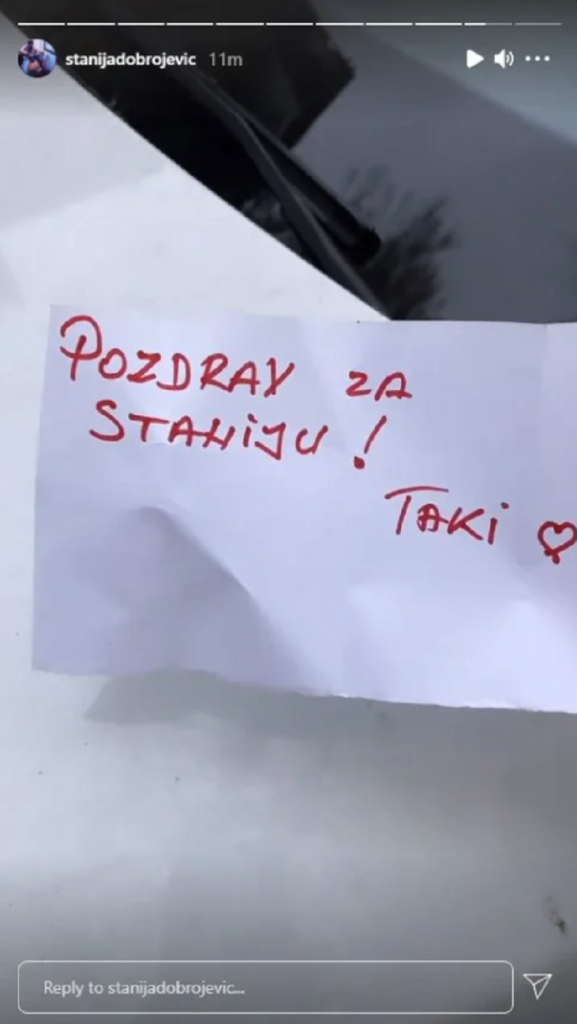 stanijadobrojevic 11m
POZDRAV ZA
STANiJU!
TAKi
Reply to stanijadobrojevic...